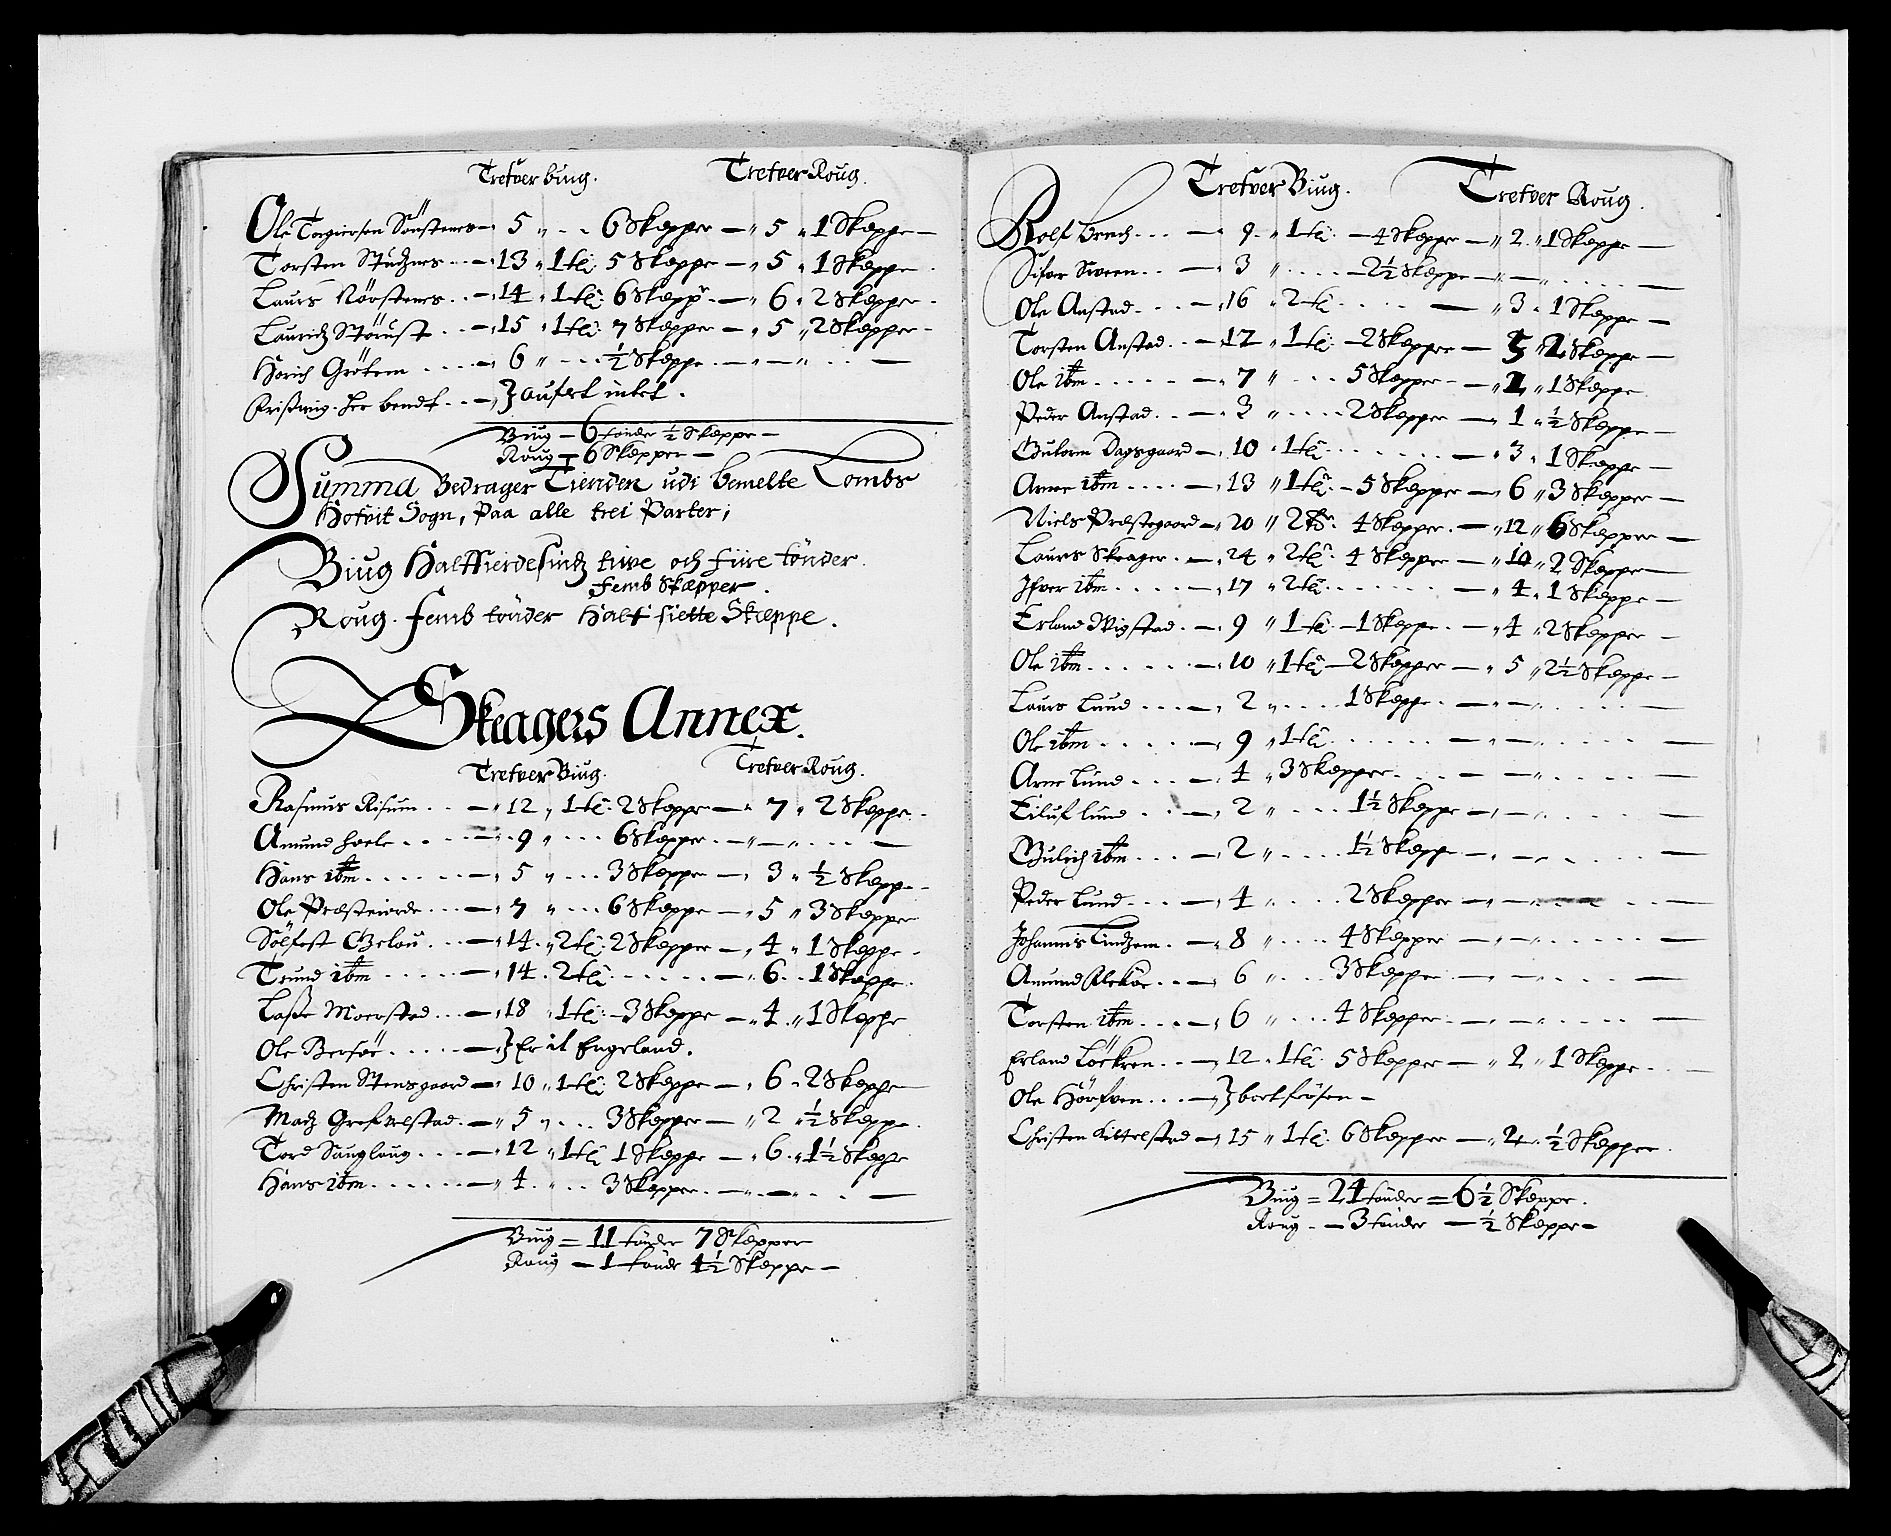 Trefver biug. Trefver Roug.
Ole Torgiersen Sönstenes — 5 „ - - 6 Skepper — „ 5 „ 1 Skeppe —
Torsten Studznes - - — 13 „ 1 tü: 5 Skeppe — „ 5 „ 1 Skeppe
Laurs Nörstenes - - — 14 „ 1 tü: 6 Skepp — „ 6 „ 2 Skepper -
Lauridz Störust - - — 15 „ 1 tü: 7 Skepper — „ 5 „ 2 Skepper -
Henrich Grötem - - - — 6 „ - - - ½ Skeppe — „ — „ - - —
her bendt - - — } aufset intet .
Biug — 6 tönder ½ Skeppe —
Roug — 6 Skepper —
Summa Bedrager Tienden udi bemelte Lombs
Hofvit Sogn, Paa alle trei Parter;
Biug Halffierdesindz tiuve och fiire tönder.
femb Skepper.
Roug. femb tönder Halt siette Skeppe.
Skeagers Annex.
Trefver Biug. Trefver Roug.
Rasmus Risum - - — „ 12 „ 1 tü: 2 Skeppe — „ 7 „ 2 Skeppe -
Amund - - - — 9 „ - - - 6 Skepper — „ — „ - - —
Hans ibm - - - - — 5 „ - - - 3 Skeppe — „ 3 „ ½ Skepp -
Ole Præsteierde - - — 7 „ - - - 6 Skeppe — „ 5 „ 3 Skepper
Sölfest - - — 14 „ 2 tü: 2 Skepper — „ 4 „ 1 Skeppe -
Trund ibm - - - — 14 „ 2 tü - - - — „ 6 - 1 Skeppe
Lasse Moerstad - - — 18 „ 1 tü: 3 Skeppe — „ 4 „ 1 Skeppe
Ole - - - — } Er il Engeland.
Christen Stensgaard — 10 „ 1 tü: 2 Skeppe — „ 6 - 2 Skeppe
Madz - — „ 5 „ - - 3 Skepper — „ 2 „ ½ Skeppe
Tord - - — 12 „ 1 tü 1 Skeppe — „ 6 „ 1½ Skeppe
Hans ibm - - - - — 4 „ - - 3 Skepper - — „ — „ - - —
Biug = 11 tönder 7 Skepper
Roug — 1 tönde 4½ Skeppe —
Trefver Biug. Trefver Roug.
Rolf - - — 9 „ 1 tü: — 4 Skepper — „ 2 „ 1 Skeppe —
Sifver Sween - - — 3 „ - - - — 2½ Skeppe — „ — - - - —
Ole Anstad - - — 16 „ 2 tü - - - — „ 3 „ 1 Skeppe —
Torsten Anstad - - — 12 „ 1 tü: — 2 Skepper — 5 „ 1 Skeppe —
Ole ibm - - - - — 7 „ - - - 5 Skepper - — „ 1 „ 1 Skeppe
Peder Anstad - - — 3 „ - - - 2 Skepper — „ 1 „ ½ Skeppe —
Gutorm Dagsgaard — 10 „ 1 tü - - - — „ 3 „ 1 Skeppe —
Arne ibm - - - — 13 „ 1 tü — 5 Skepper — „ 6 „ 3 Skepper —
Niels Præstegaard — 20 „ 2 tü 4 Skepper — „ 12 „ 6 Skepper —
Laurs Skeager - — 24 „ 2 tü: 4 Skepper — „ 10 „ 2 Skepper —
Ifver ibm - - - — 17 „ 2 tü - - - — „ 4 „ 1 Skeppe —
Erland Wigstad - — 9 „ 1 tü — 1 Skeppe - — „ 4 „ 2 Skepper —
Ole ibm - - - - — 10 „ 1 tü — 2 Skepper — „ 5 „ 2½ Skeppe —
Laurs Lund - - - — 2 „ - - - 1 Skeppe - — „ — - - - —
Ole ibm - - - - — 9 „ 1 tü - - - — „ — - - - —
Arne Lund - - - — 4 „ 3 Skepper - - — „ — - - - —
Eiluf lund - - — 2 „ - - - 1½ Skeppe — „ — - - - —
Gulich ibm - - - — 2 „ - - - 1½ Skeppe — „ — - - - —
Peder Lund - - - — 4 „ - - - 2 Skepper — „ — - - - —
Johannis Lindzem - — 8 „ - - - 4 Skepper — „ — - - - —
Amund - - — 6 „ - - - 3 Skeppe — „ — - - - —
Torsten ibm - - - — 6 „ - - - 4 Skepper - — „ — - - - —
Erland Löckren - - — 12 „ 1 tü: 5 Skepper — „ 2 „ 1 Skeppe - —
Ole Hörfven - - - — } bortfrösen —
Christen Kittelstad — 15 „ 1 tü: 6 Skepper — „ 2 „ ½ Skepper
Biug = 24 tönder = 6½ Skeppe.
Roug - — 3 tönder — ½ Skeppe —